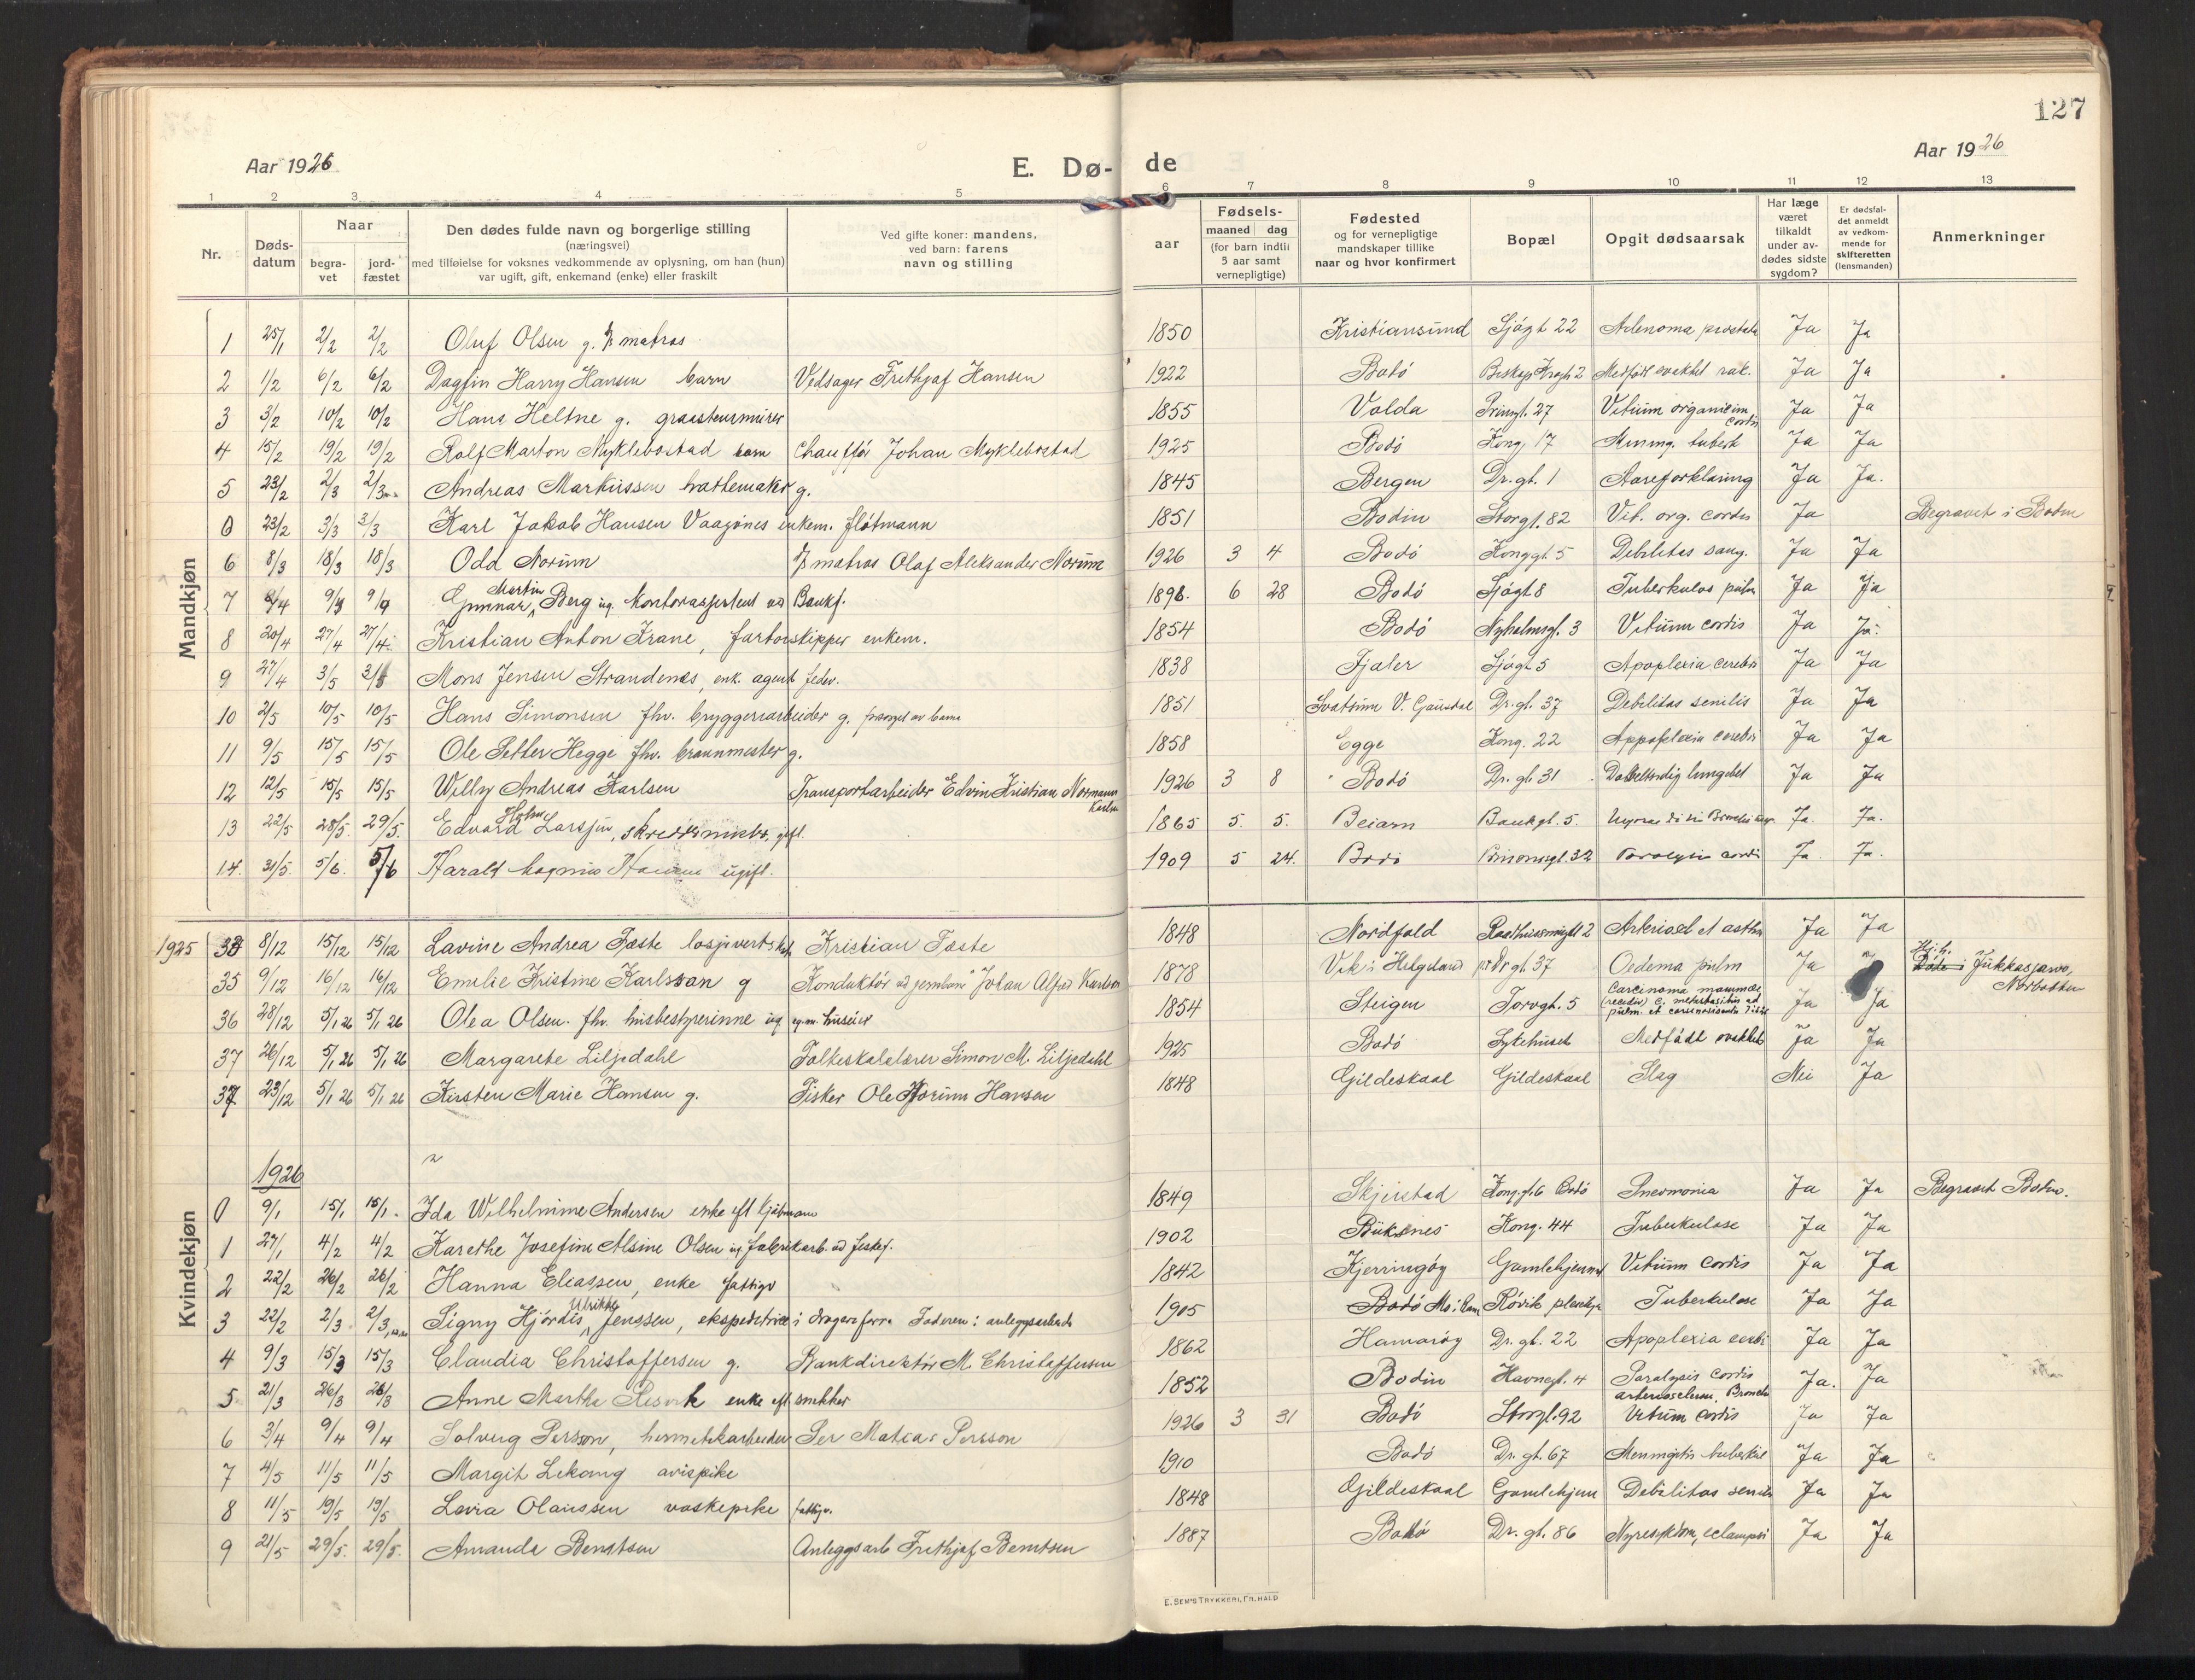 127
Aar 1926 E. Dø- de Aar 1926
1 2 3 4 5 6 7 8 9 10 11 12 13
Nr.
Døds-
datum
Naar
begra-
vet
jord-
fæstet
Den dødes fulde navn og borgerlige stilling
(næringsvei)
med tilføielse for voksnes vedkommende av oplysning, om han (hun)
var ugift, gift, enkemand (enke) eller fraskilt
Ved gifte koner: mandens,
ved barn: farens
navn og stilling
aar
Fødsels-
maaned dag
(for barn indtil
5 aar samt
vernepligtige)
Fødested
og for vernepligtige
mandskaper tillike
naar og hvor konfirmert
Bopæl
Opgit dødsaarsak
Har læge
været
tilkaldt
under av-
dødes sidste
sygdom?
Er dødsfal-
det anmeldt
av vedkom-
mende for
skifteretten
(lensmanden)
Anmerkninger
Mandkjøn
1 25/1 2/2 2/2 Oluf Olsen g. matros 1850 Kristiansund Sjøgt 22 Adenoma prostata Ja Ja
2 1/2 6/2 6/2 Dagfin Harry Hansen barn Vedsager Frithjof Hansen 1922 Bodó Ja Ja
3 3/2 10/2 10/2 Hans Heltne g. graastensmurer 1855 Volda Prinsgt. 27 Vitium organicum cordis Ja Ja
4 15/2 19/2 19/2 Rolf Marton Myklebostad barn Chauffør Johan Myklebostad 1925 Bodó Kong. 17 Mening. tuberk Ja Ja
5 23/2 2/3 2/3 Andreas Markussen g. 1845 Bergen Dr. gt. 1 Aareforkalkning Ja Ja.
0 23/2 3/3 3/3 Karl Jakob Hansen Vaagönes enkem. flötmann 1851 Bodin Storgt. 82 Vit. org. cordis Ja Begravet i Bodin
6 8/3 18/3 18/3 Odd Norum matros Olaf Aleksander Norum 1926 3 4 Bodó Konggt. 5 Debilitas Ja Ja
7 9/4 9/4 Gunnar Martin Berg ug. kontorassistent ved Bankf. 1896. 6 28 Bodó Sjøgt 8 Tuberkulos pulm Ja Ja
8 20/4 27/4 27/4 Kristian Anton Krane, enkem. 1854 Bodó Nyholmsgt. 3 Vitium cordis Ja Ja.
9 27/4 3/5 3/5 Mons Jensen Strandenes, enk. agent 1838 Fjaler Sjøgt 5 Apoplexia cerebri Ja Ja
10 2/5 10/5 10/5 Hans Simonsen fhv. bryggeriarbeider g. 1851 V. Gausdal Dr. gt. 37 Debilitas senilis Ja Ja
11 9/5 15/5 15/5 Ole Petter Hegge fhv. g. 1858 Egge Kong. 22 Appoplexia cerebri Ja Ja
12 12/5 15/5 15/5 Willy Andreas Karlsen Transportarbeider Edvin Kristian Normann Karlsen 1926 3 8 Bodó Dr. gt. 31 Dobbeltsidig lungebet Ja Ja
13 22/5 28/5. 29/5. Edvard Holm Larssen, skreddermester, gift. 1865 5. 5. Beiarn Bankgt. 5. Ja. Ja.
14. 31/5. 5/6. 5/6 Harald Magnus Hansen ugift. 1909 5 24. Bodó Prinsensgt. 32 Paralysis cordis Ja. Ja.
Kvindekjøn
1925 33 8/12 15/12 15/12 Lavine Andrea Fæste Kristian Fæste 1848 Nordfold Raadhusengt 2 Ja Ja
35 9/12 16/12 16/12 Emelie Kristine Karlsson g Konduktör ved jernbane Johan Alfred Karlsson 1878 Vik i Helgeland Dr gt. 37 Oedema pulm Ja Jukkasjarvi, Norbotten
36 28/12 5/1 26 5/1 26 Olea Olsen. fhv. husbestyrerinne ug 1854 Steigen Torvgt. 5 Carcinoma mammae Ja Ja
37 26/12 5/1 26 5/1 26 Margarete Liljedahl Folkeskolelærer Simon M. Liljedahl 1925 Bodó Sykehuset Medfödt Ja Ja
37 23/12 5/1 26 5/1 26 Kirsten Marie Hansen g. Fisker Ole Norum Hansen 1848 Gildeskaal Gildeskaal Slag Nei Ja
1926
0 9/1 15/1 15/1. Ida Wilhelmine Andersen enke eft 1849 Skjerstad Konggt. 6 Bodó Pneumonia Ja Ja Begravet Bodin.
1 27/1 4/2 4/2 Karethe Josefine Alsine Olsen ug. fabrikarb. 1902 Buksnes Kong. 44 Tuberkulose Ja Ja
2 22/2 26/2 26/2 Hanna Eliassen, enke fattigv 1842 Kjerringøy Gamlehjemmet Vitium cordis Ja Ja
3 22/2 2/3 2/3 Signy Hjördis Ulrikke Jenssen, ekspeditrice Faderen: anleggsarbeide 1905 Bodó Rövik Tuberkulose Ja Ja
4 9/3 15/3 15/3 Claudia Christoffersen g. Bankdirektör M. Christoffersen 1862 Hamaröy Dr. gt. 22 Apoplexia cerebri Ja Ja
5 21/3 26/3 26/3 Anne Martha enke eft snekker 1852 Bodin Havnegt. 4 Paralysis cordis Ja. Ja
6 3/4 9/4 9/4 Solveig Persson, hermetikarbeider Per Matias Persson 1926 3 31 Bodó Storgt. 92 Vitium cordis Ja Ja
7 4/5 11/5 11/5 Margit Lekang avispike 1910 Bodó Dr. gt. 67 Meningitis tuberkul Ja Ja
8 11/5 19/5 19/5 Lovia Olaussen vaskepike fattigv. 1848 Gildeskaal Gamlehjem Debilitas senilis Ja Ja
9 21/5 29/5. 29/5. Amanda Berntsen Anleggsarb Frithjof Berntsen 1887 Bodó Dr. gt. 86 Nyresykdom, eclampsi Ja Ja
E. SEM'S TRYKKERI, FR. HALD